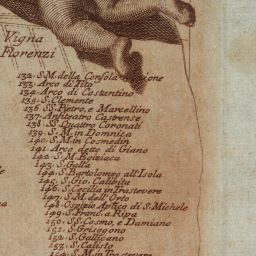 Vigna
Florenzi
132. S. M. della Consolazione
133. Arco di Tito
134. Arco di Costantino
135. S. Clemente
136 SS. Pietro, e Marcellino
137. Anfiteatro Castrense
138. SS. Quattro Coronati
139. S. M. in Domnica
140. S. M. in Cosmedin
141. Arco detto di Giano
142. S. M.
143. S. Galla
144. S. Bartolomeo all'Isola
145. S. Gio. Calibita
146. S. Cecilia in Trastevere
147. S. M. dell'Orto
148 Ospizio Aplico di S. Michele
149. S. Franc. a Ripa
150. SS. Cosmo, e Damiano
151. S. Grisogono
152. S. Gallicano
153. S. Calisto
154. S. M. in Trastevere